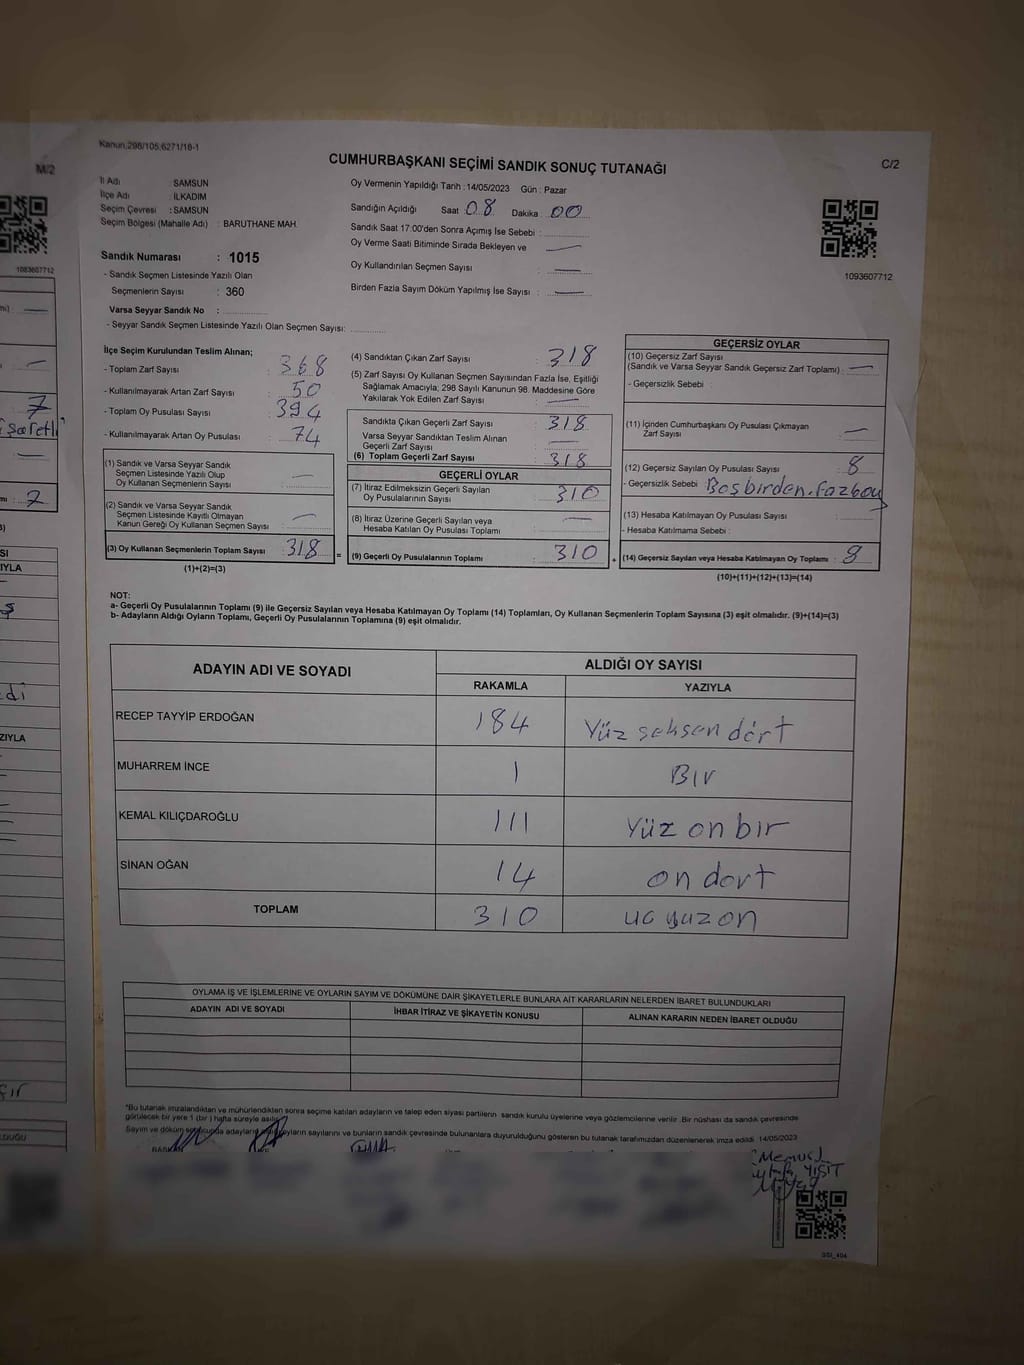 Kanun:298/105,6271/18-1
CUMHURBAŞKANI SEÇİMİ SANDIK SONUÇ TUTANAĞI
C/2
M/2
İl Adı : SAMSUN
İlçe Adı : İLKADIM
Seçim Çevresi : SAMSUN
Seçim Bölgesi (Mahalle Adı) : BARUTHANE MAH.
Oy Vermenin Yapıldığı Tarih : 14/05/2023 Gün : Pazar
Sandığın Açıldığı Saat 08 Dakika : 00
Sandık Saat 17:00'den Sonra Açımış İse Sebebi :
Oy Verme Saati Bitiminde Sırada Bekleyen ve
Oy Kullandırılan Seçmen Sayısı :
Birden Fazla Sayım Döküm Yapılmış İse Sayısı :
1093607712
1083607712
Sandık Numarası : 1015
- Sandık Seçmen Listesinde Yazılı Olan
Seçmenlerin Sayısı : 360
Varsa Seyyar Sandık No :
- Seyyar Sandık Seçmen Listesinde Yazılı Olan Seçmen Sayısı:
İlçe Seçim Kurulundan Teslim Alınan;
- Toplam Zarf Sayısı : 368
- Kullanılmayarak Artan Zarf Sayısı : 50
- Toplam Oy Pusulası Sayısı : 394
- Kullanılmayarak Artan Oy Pusulası : 74
(1) Sandık ve Varsa Seyyar Sandık
Seçmen Listesinde Yazılı Olup
Oy Kullanan Seçmenlerin Sayısı :
(2) Sandık ve Varsa Seyyar Sandık
Seçmen Listesinde Kayıtlı Olmayan
Kanun Gereği Oy Kullanan Seçmen Sayısı :
(3) Oy Kullanan Seçmenlerin Toplam Sayısı : 318 =
(1)+(2)=(3)
(4) Sandıktan Çıkan Zarf Sayısı : 318
(5) Zarf Sayısı Oy Kullanan Seçmen Sayısından Fazla İse, Eşitliği
Sağlamak Amacıyla; 298 Sayılı Kanunun 98. Maddesine Göre
Yakılarak Yok Edilen Zarf Sayısı :
Sandıkta Çıkan Geçerli Zarf Sayısı : 318
Varsa Seyyar Sandıktan Teslim Alınan
Geçerli Zarf Sayısı :
(6) Toplam Geçerli Zarf Sayısı : 318
GEÇERLİ OYLAR
(7) İtiraz Edilmeksizin Geçerli Sayılan
Oy Pusulalarının Sayısı : 310
(8) İtiraz Üzerine Geçerli Sayılan veya
Hesaba Katılan Oy Pusulası Toplamı :
(9) Geçerli Oy Pusulalarının Toplamı : 310 +
GEÇERSİZ OYLAR
(10) Geçersiz Zarf Sayısı
(Sandık ve Varsa Seyyar Sandık Geçersiz Zarf Toplamı) :
- Geçersizlik Sebebi :
(11) İçinden Cumhurbaşkanı Oy Pusulası Çıkmayan
Zarf Sayısı :
(12) Geçersiz Sayılan Oy Pusulası Sayısı : 8
- Geçersizlik Sebebi : Boş birden.fazla oy
(13) Hesaba Katılmayan Oy Pusulası Sayısı :
- Hesaba Katılmama Sebebi :
(14) Geçersiz Sayılan veya Hesaba Katılmayan Oy Toplamı : 8
(10)+(11)+(12)+(13)=(14)
NOT:
a- Geçerli Oy Pusulalarının Toplamı (9) ile Geçersiz Sayılan veya Hesaba Katılmayan Oy Toplamı (14) Toplamları, Oy Kullanan Seçmenlerin Toplam Sayısına (3) eşit olmalıdır. (9)+(14)=(3)
b- Adayların Aldığı Oyların Toplamı, Geçerli Oy Pusulalarının Toplamına (9) eşit olmalıdır.
ADAYIN ADI VE SOYADI ALDIĞI OY SAYISI
RAKAMLA YAZIYLA
RECEP TAYYİP ERDOĞAN 184 Yüz seksen dört
MUHARREM İNCE 1 Bir
KEMAL KILIÇDAROĞLU 111 Yüz on bir
SİNAN OĞAN 14 on dort
TOPLAM 310 uc yuz on
OYLAMA İŞ VE İŞLEMLERİNE VE OYLARIN SAYIM VE DÖKÜMÜNE DAİR ŞİKAYETLERLE BUNLARA AİT KARARLARIN NELERDEN İBARET BULUNDUKLARI
ADAYIN ADI VE SOYADI İHBAR İTİRAZ VE ŞİKAYETİN KONUSU ALINAN KARARIN NEDEN İBARET OLDUĞU
*Bu tutanak imzalandıktan ve mühürlendikten sonra seçime katılan adayların ve talep eden siyasi partilerin sandık kurulu üyelerine veya gözlemcilerine verilir. Bir nüshası da sandık çevresinde
görülecek bir yere 1 (bir) hafta süreyle asılır.
Sayım ve döküm sonucunda adayların sayılarını ve bunların sandık çevresinde bulunanlara duyurulduğunu gösteren bu tutanak tarafımızdan düzenlenerek imza edildi. 14/05/2023
YİĞİT